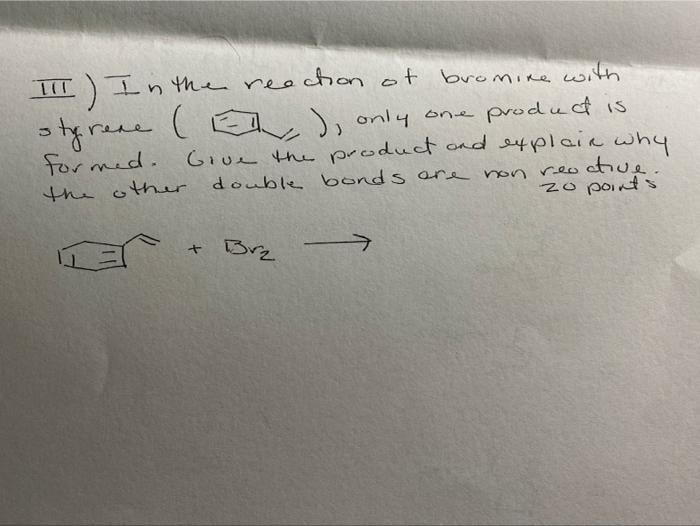 III) In the reaction of bromine with
styrene ( ), only one product is
formed. Give the product and explain why
the other double bonds are non reactive.
20 points
+ Br2 →